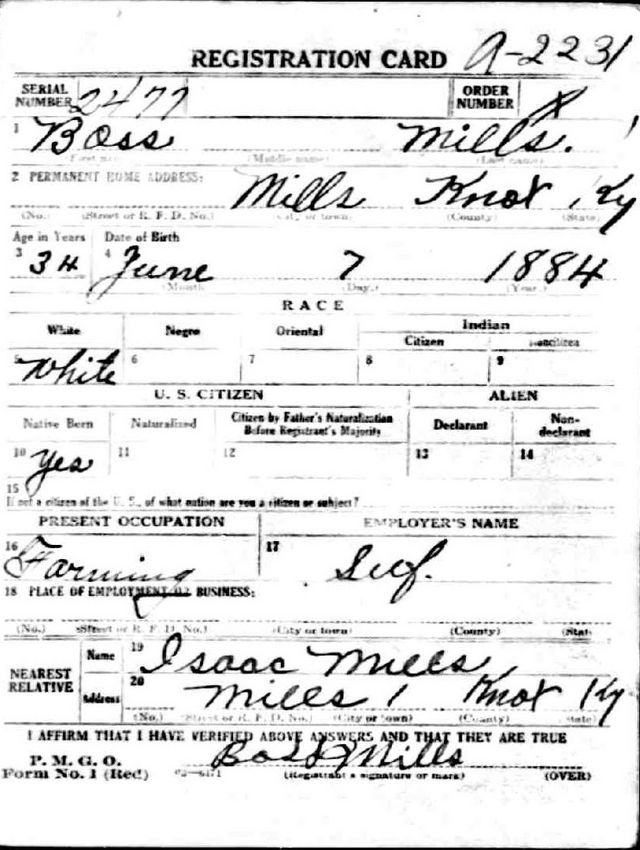 REGISTRATION CARD A-2231
SERIAL NUMBER 2477 ORDER NUMBER
1 Boss Mills.
(First name) (Middle name) (Last name)
2 PERMANENT HOME ADDRESS: Mills Knot Ky
(No.) (Street or R. F. D. No.) (City or town) (County) (State)
Age in Years Date of Birth
3 34 4 June 7 1884
(Month) (Day.) (Year.)
RACE
White Negro Oriental Indian
Citizen Noncitizen
5 White 6 7 8 9
U. S. CITIZEN ALIEN
Native Born Naturalized Citizen by Father's Naturalization Before Registrant's Majority Declarant Non-declarant
10 Yes 11 12 13 14
15
If not a citizen of the U. S., of what nation are you a citizen or subject?
PRESENT OCCUPATION EMPLOYER'S NAME
16 Farming 17 Self.
18 PLACE OF EMPLOYMENT OR BUSINESS:
(No.) (Street or R. F. D. No.) (City or town) (County) (State)
NEAREST RELATIVE Name 19 Isaac Mills
Address 20 Mills Knot Ky
(No.) (Street or R. F. D. No.) (City or town) (County) (State)
I AFFIRM THAT I HAVE VERIFIED ABOVE ANSWERS AND THAT THEY ARE TRUE
P. M. G. O. Boss Mills
Form No. 1 (Red) 03—6171 (Registrant's signature or mark) (OVER)